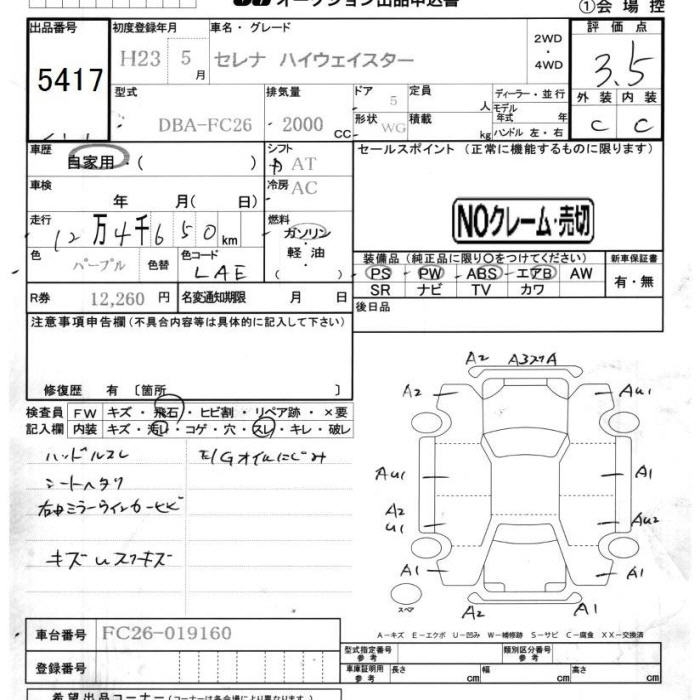 オークション出品申込書
①会場控
出品番号 初度登録年月 車名・グレード 2WD ・ 4WD 評価点
5417 H23 5月 セレナ ハイウェイスター 3.5
型式 排気量 ドア 定員 ディーラー・並行 外装 内装
DBA-FC26 2000 CC 5 人 モデル年式 年 C C
形状 WG 積載 kg ハンドル 左・右
車歴 シフト セールスポイント(正常に機能するものに限ります)
自家用・( ) AT
車検 冷房
年 月( 日) AC
NOクレーム・売切
走行 燃料
12万4千650km ガソリン・軽油・( )
色 色替 色コード 装備品(純正品に限り○をつけてください) 新車保証書
パープル LAE PS・PW・ABS・エアB・AW 有・無
SR ナビ TV カワ
R券 12,260円 名変通知期限 月 日 後日品
注意事項申告欄(不具合内容等は具体的に記入して下さい)
修復歴 有 〔箇所 〕
検査員 FW キズ・飛石・ヒビ割・リペア跡・×要
記入欄 内装 キズ・汚レ・コゲ・穴・スレ・キレ・破レ
ハンドルスレ E/Gオイルにじみ
シートヘタリ
右ミラーウインカーヒビ
キズUスリキズ
A2 A3
A2 AU1
AU1 A1
A2 U1 AU2
A1 A1
スペア A2 A1
A-キズ E-エクボ U-凹み W-補修跡 S-サビ C-腐食 XX-交換済
車台番号 FC26-019160
登録番号
型式指定番号 参考 類別区分番号 参考
車庫証明用 参考 長さ cm 幅 cm 高さ cm
希望出品コーナー(コーナーは各会場により異なります)